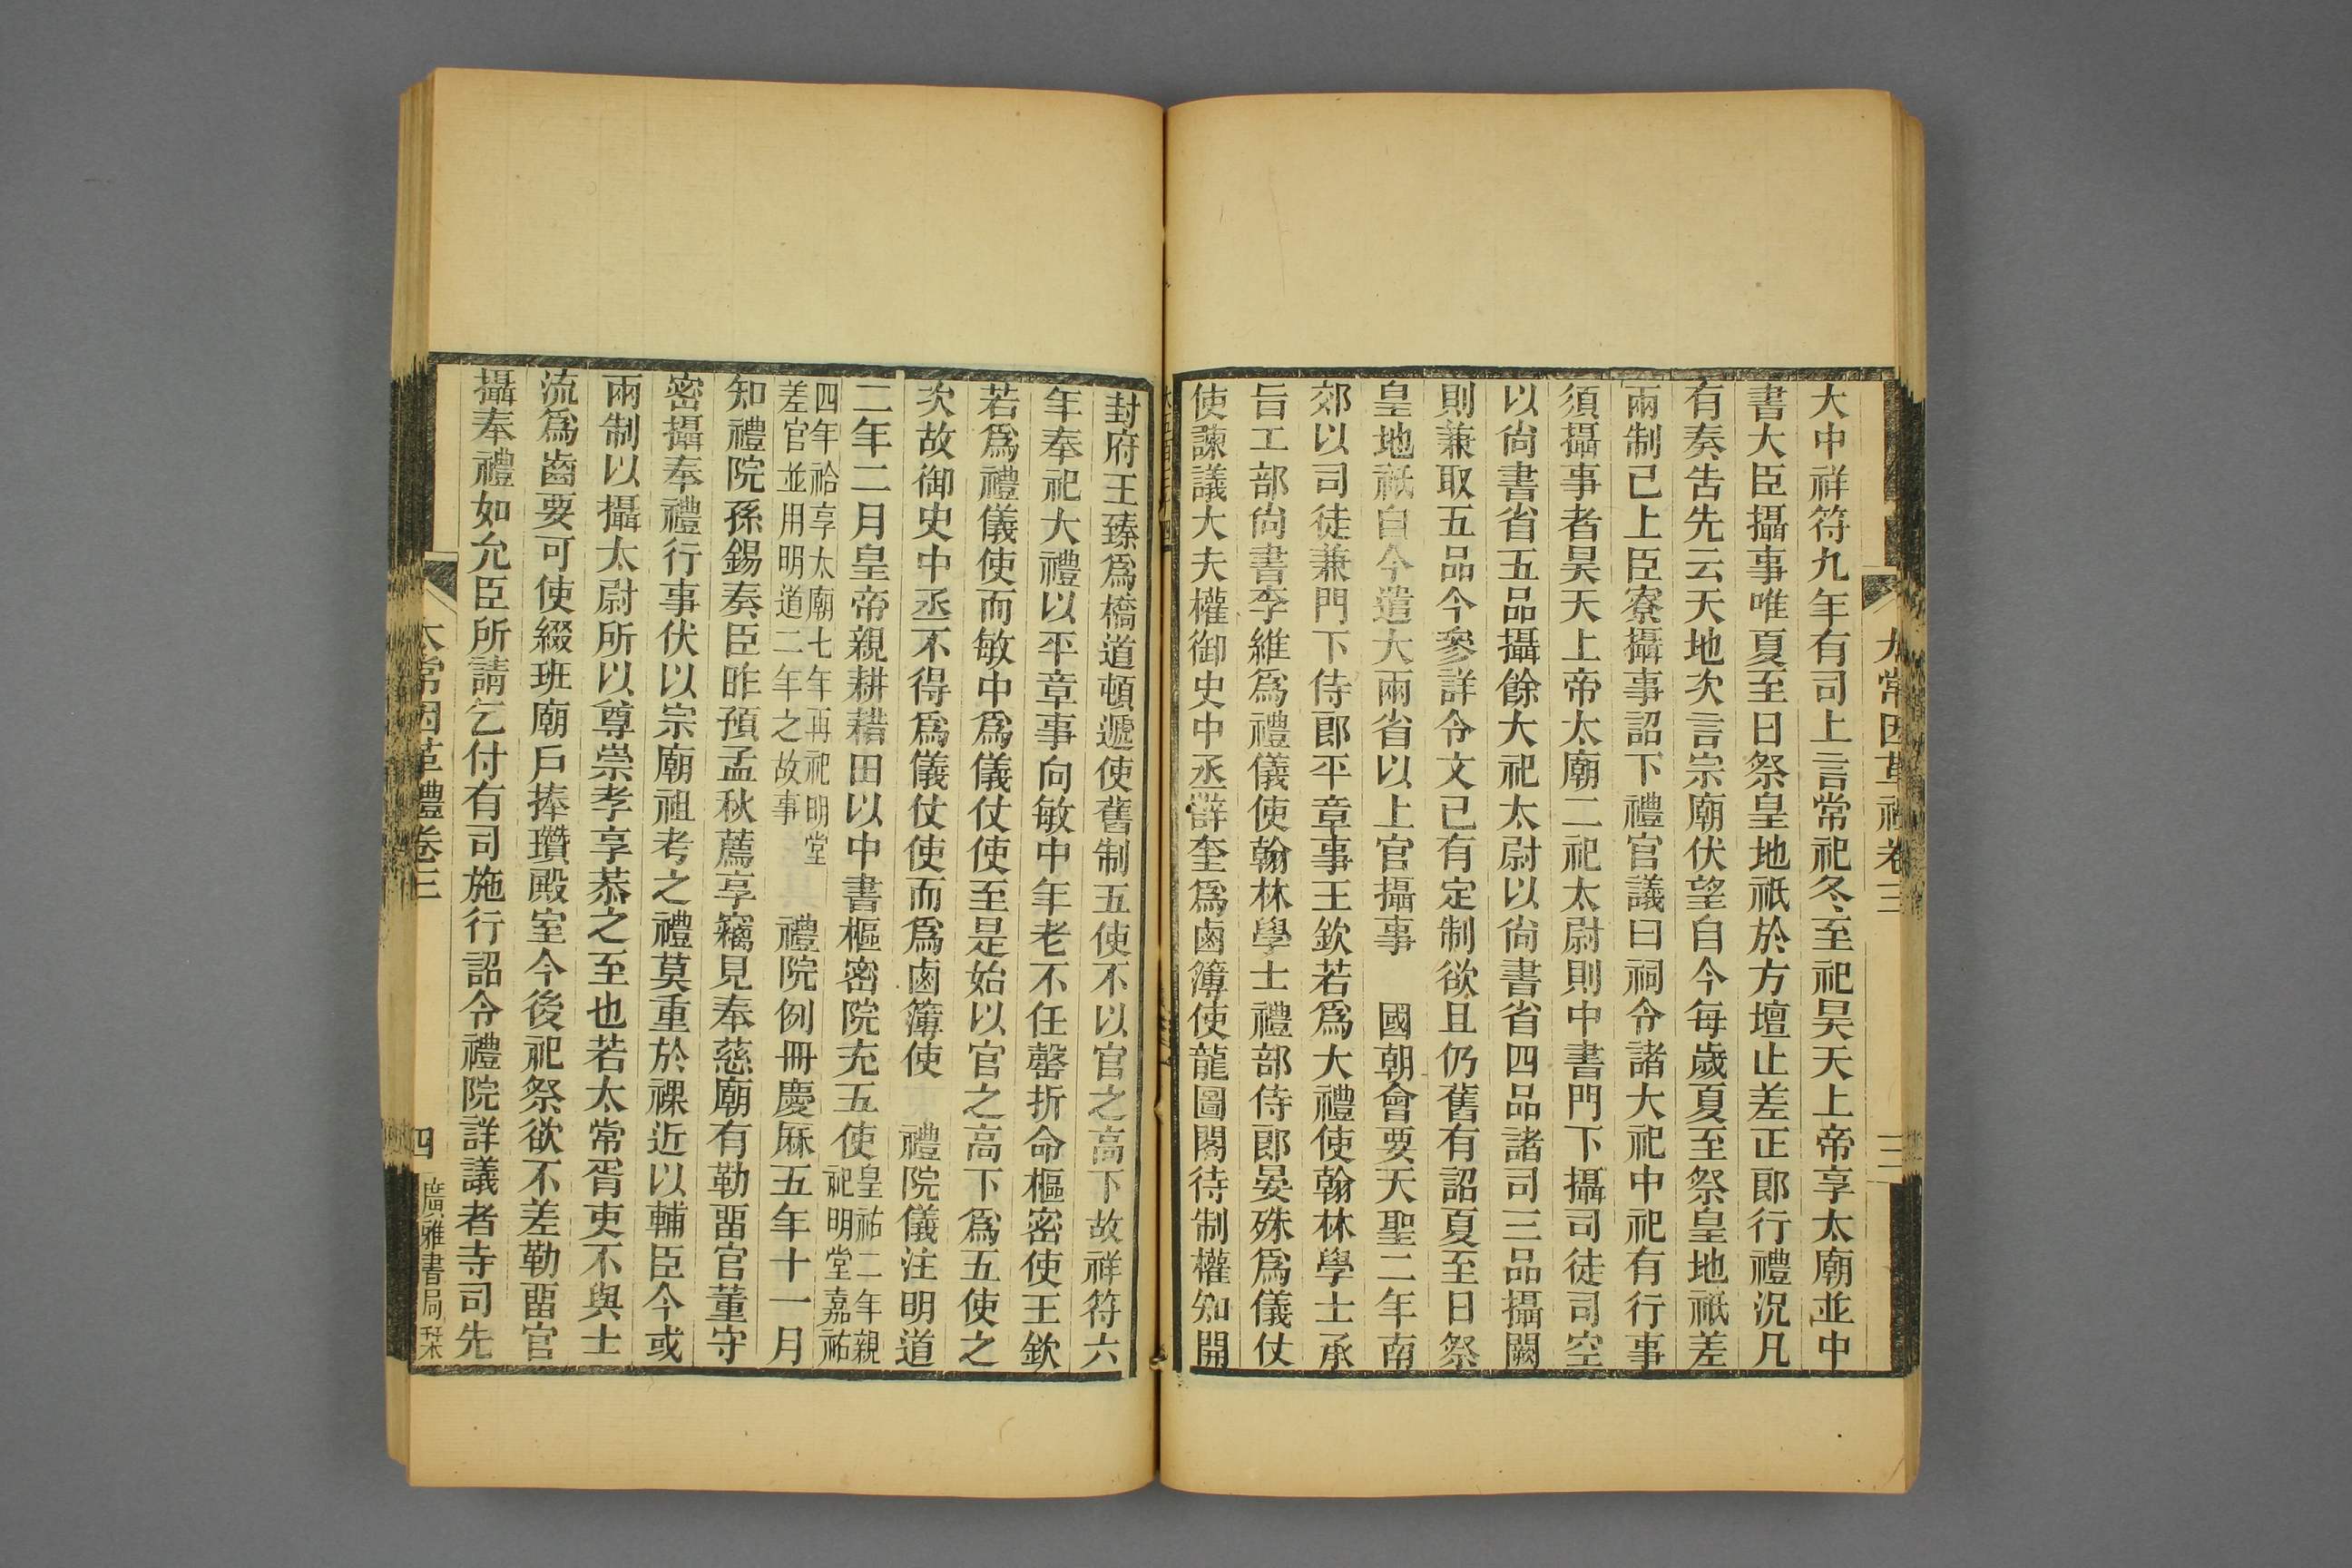 太常因革禮卷三
三
大中祥符九年有司上言常祀冬至祀昊天上帝享太廟並中
書大臣攝事唯夏至日祭皇地祇於方壇止差正郎行禮況凡
有奏告先云天地次言宗廟伏望自今每歲夏至祭皇地祇差
兩制已上臣寮攝事詔下禮官議曰祠令諸大祀中祀有行事
須攝事者昊天上帝太廟二祀太尉則中書門下攝司徒司空
以尚書省五品攝餘大祀太尉以尚書省四品諸司三品攝闕
則兼取五品今參詳令文已有定制欲且仍舊有詔夏至日祭
皇地祇自今遣大兩省以上官攝事　國朝會要天聖二年南
郊以司徒兼門下侍郎平章事王欽若爲大禮使翰林學士承
旨工部尚書李維爲禮儀使翰林學士禮部侍郎晏殊爲儀仗
使諫議大夫權御史中丞薛奎爲鹵簿使龍圖閣待制權知開
封府王臻爲橋道頓遞使舊制五使不以官之高下故祥符六
年奉祀大禮以平章事向敏中年老不任罄折命樞密使王欽
若爲禮儀使而敏中爲儀仗使至是始以官之高下爲五使之
次故御史中丞不得爲儀仗使而爲鹵簿使　禮院儀注明道
二年二月皇帝親耕耤田以中書樞密院充五使皇祐二年親
祀明堂嘉祐
四年祫享太廟七年再祀明堂
差官並用明道二年之故事　禮院例冊慶厤五年十一月
知禮院孫錫奏臣昨預孟秋薦享竊見奉慈廟有勒畱官董守
密攝奉禮行事伏以宗廟祖考之禮莫重於祼近以輔臣今或
兩制以攝太尉所以尊崇孝享恭之至也若太常胥吏不與士
流爲齒要可使綴班廟戶捧瓚殿室今後祀祭欲不差勒畱官
攝奉禮如允臣所請乞付有司施行詔令禮院詳議者寺司先
太常因革禮卷三
四
廣雅書局栞